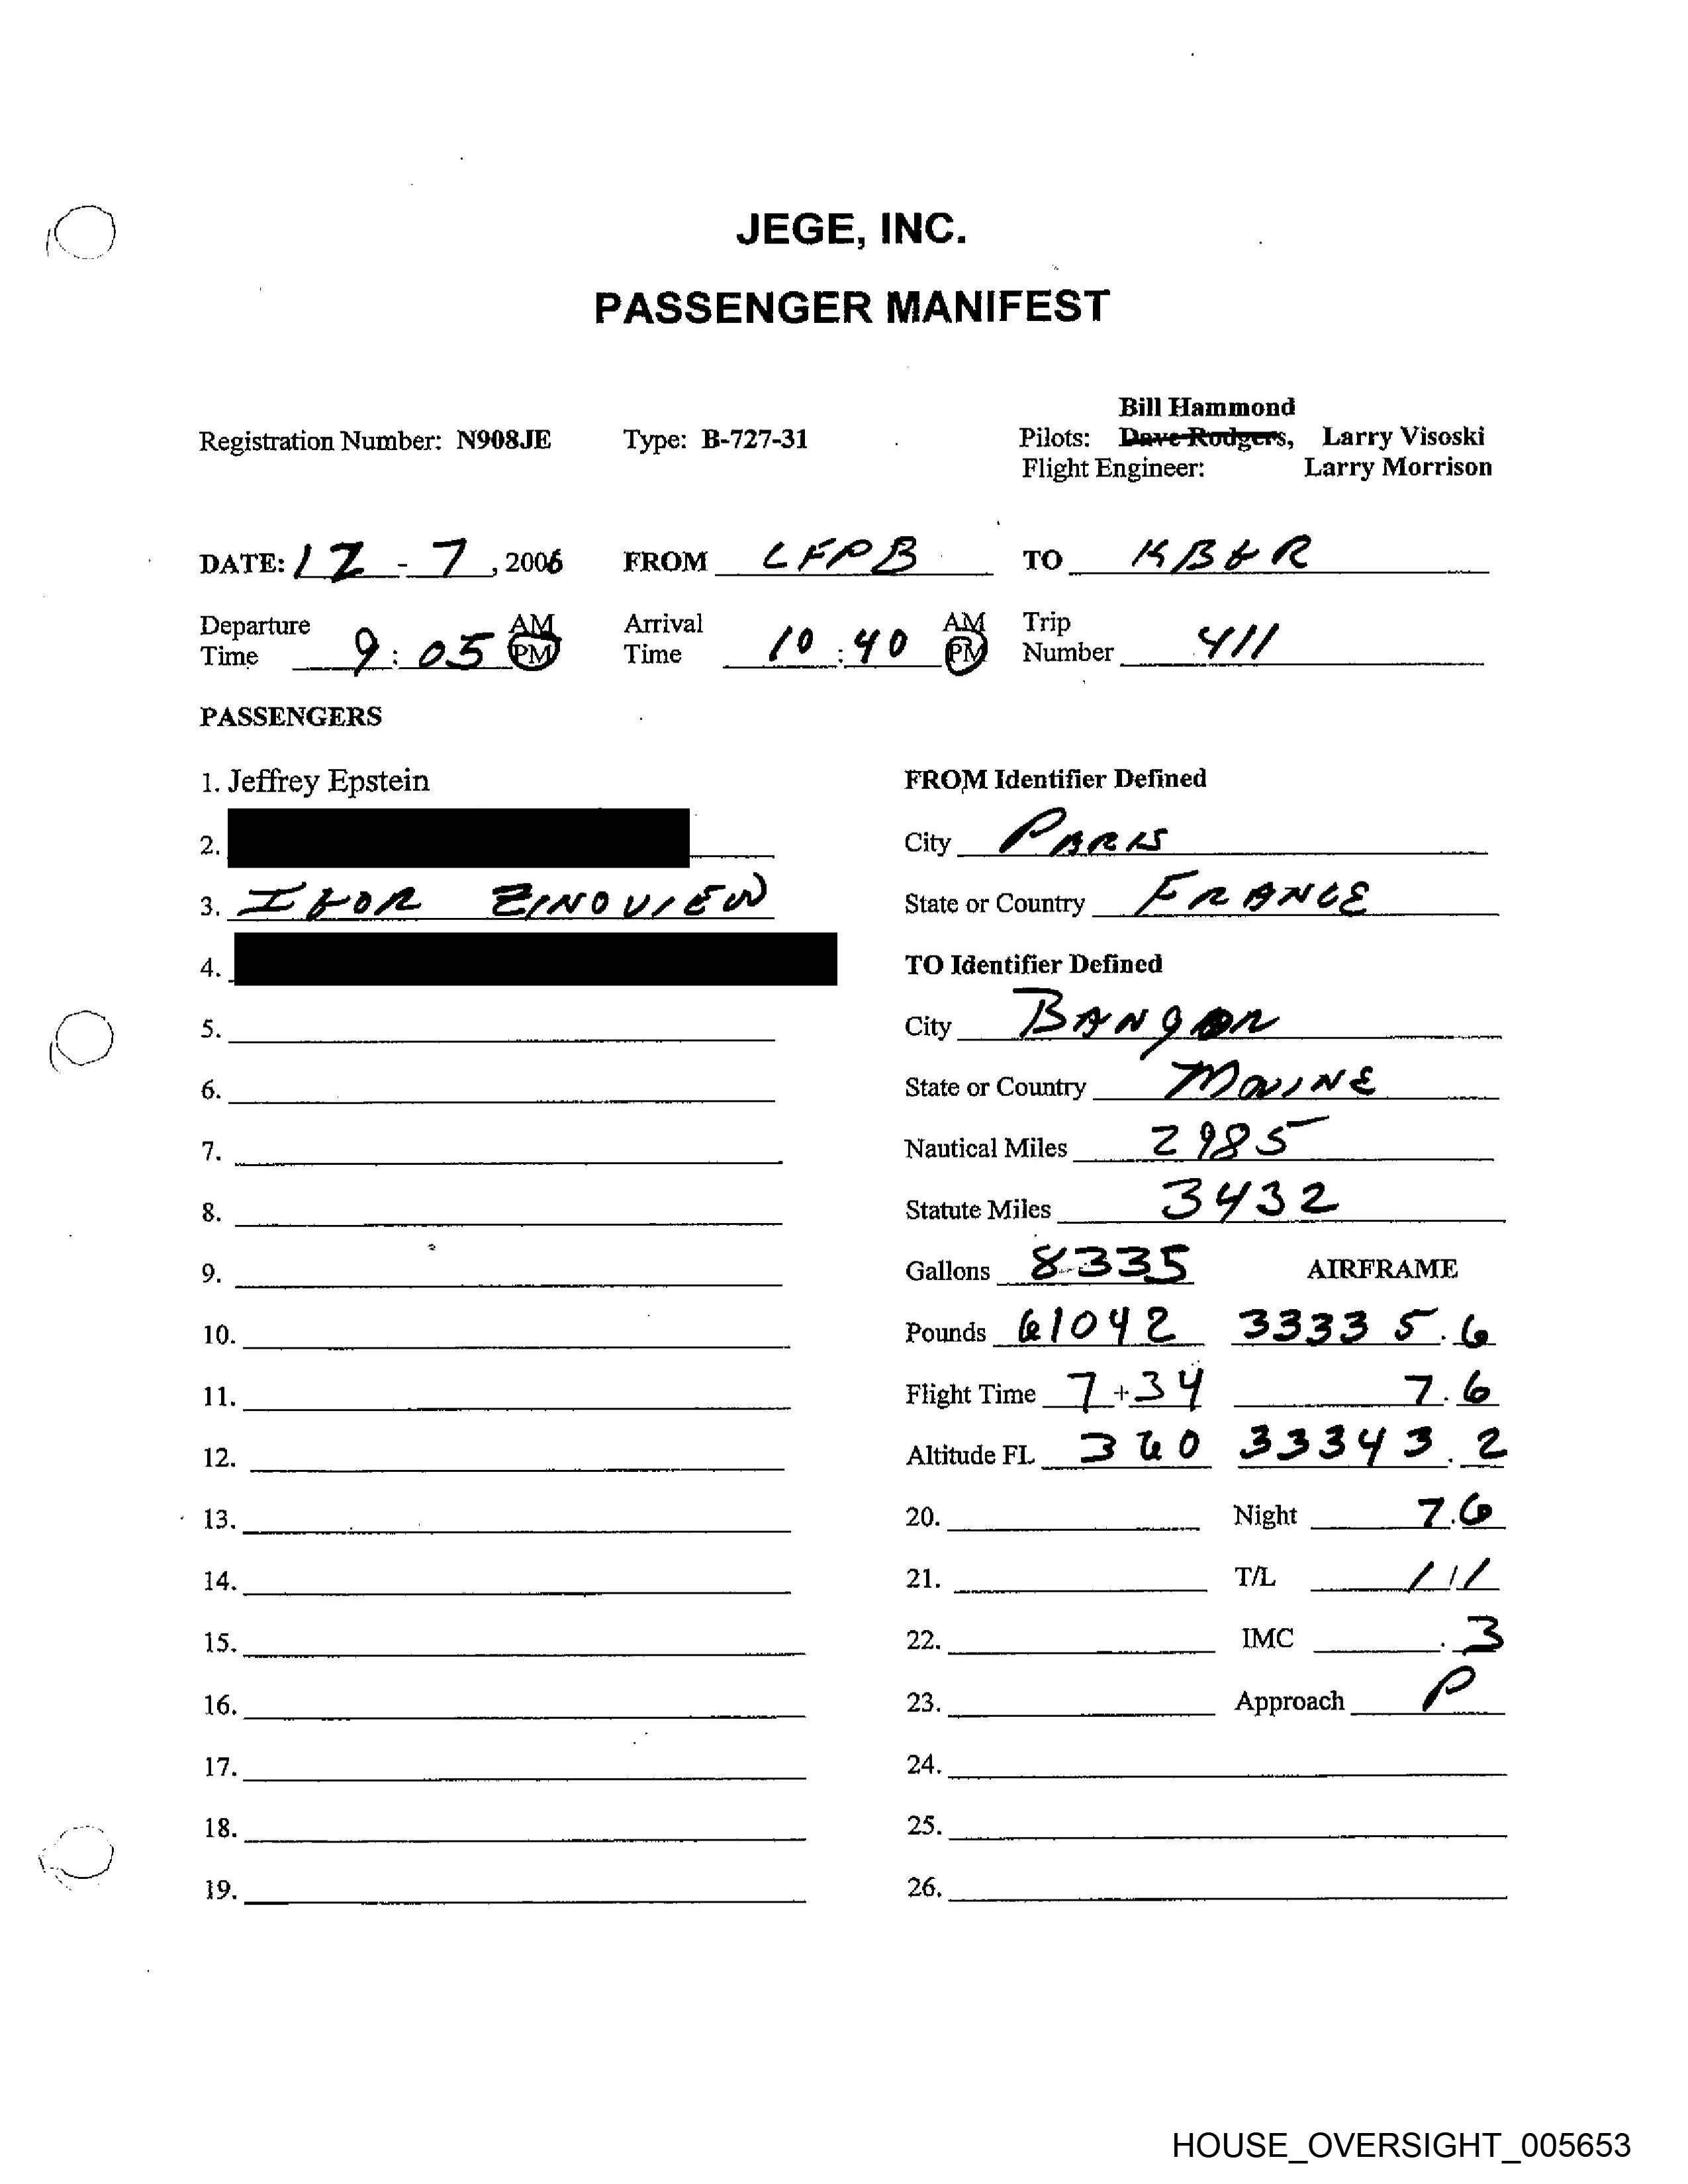 JEGE, INC.
PASSENGER MANIFEST
Bill Hammond
Registration Number: N908JE Type: B-727-31 Pilots: Dave Rodgers, Larry Visoski
Flight Engineer: Larry Morrison
DATE: 12 - 7, 2006 FROM LFPB TO KBGR
Departure Time 9:05 AM PM Arrival Time 10:40 AM PM Trip Number 411
PASSENGERS
1. Jeffrey Epstein
2.
3. IGOR ZINOVIEW
4.
5.
6.
7.
8.
9.
10.
11.
12.
13.
14.
15.
16.
17.
18.
19.
FROM Identifier Defined
City PARIS
State or Country FRANCE
TO Identifier Defined
City BANGOR
State or Country MAINE
Nautical Miles 2985
Statute Miles 3432
Gallons 8335 AIRFRAME
Pounds 61042 33335.6
Flight Time 7+34 7.6
Altitude FL 360 33343.2
20. Night 7.6
21. T/L 1/1
22. IMC .3
23. Approach P
24.
25.
26.
HOUSE_OVERSIGHT_005653